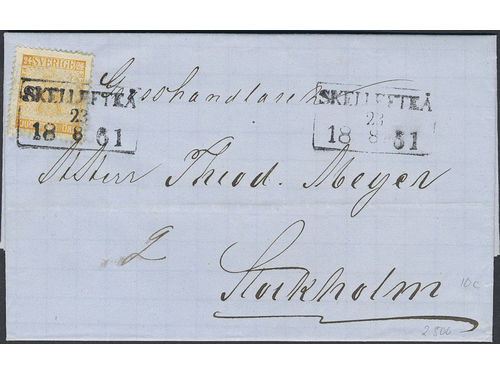 24 SVERIGE 24
SKELLEFTEÅ
23
18 8 61
SKELLEFTEÅ
23
18 8 61
Grosshandlaren
Theod. Meyer
2
Stockholm
10c